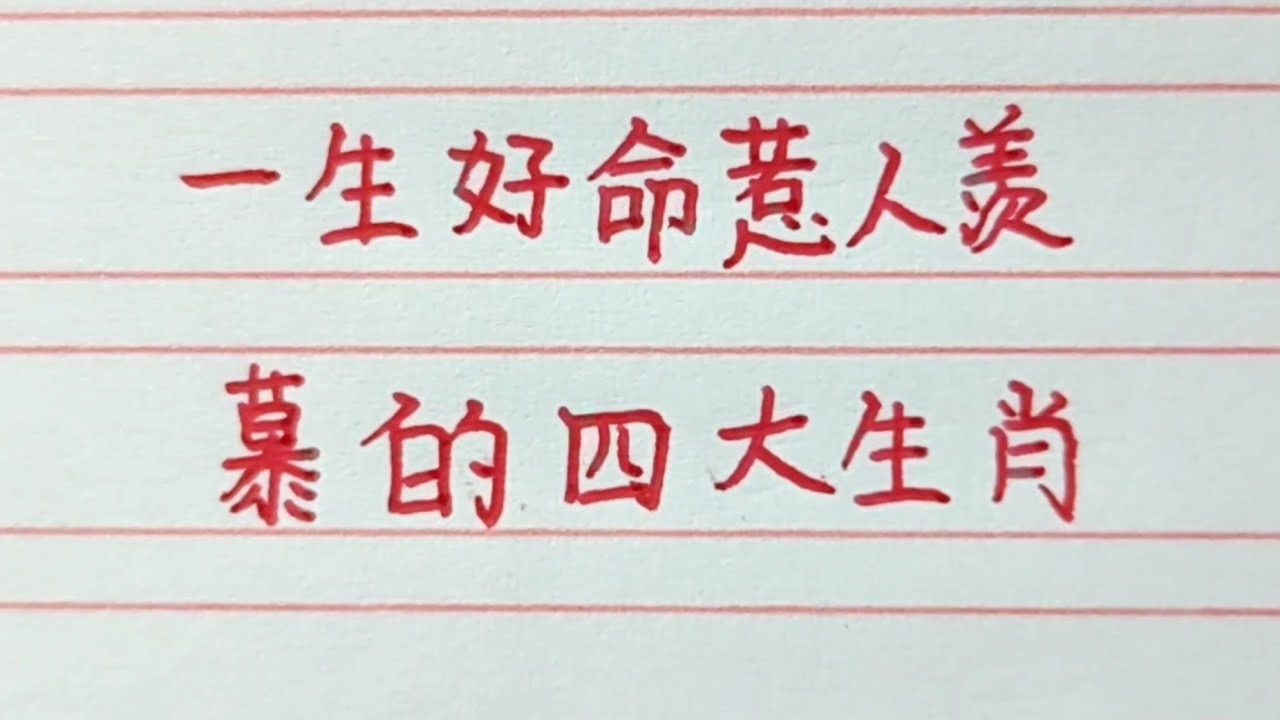 一生好命惹人羡
慕的四大生肖